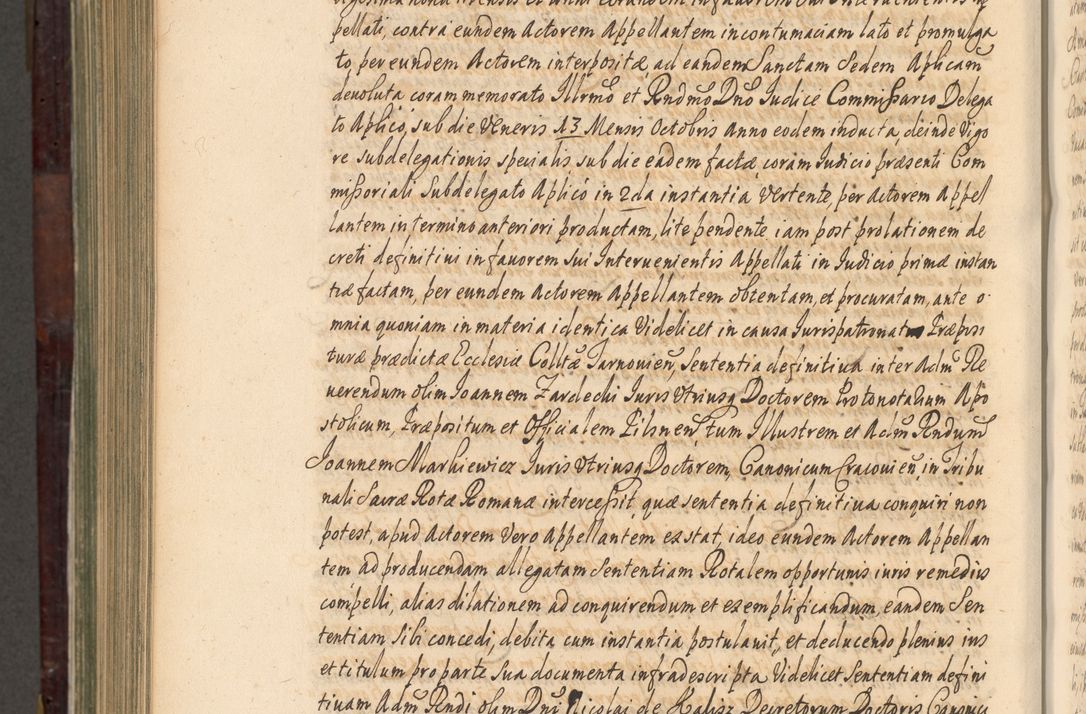 pellati, contra eundem Actorem Appellantem in contumaciam lato et promulga
to, per eundem Actorem interpositæ, ad eandem Sanctam Sedem Aplicam
devoluta coram memorato Illrmo et Rndmo Dno Iudice Commissario Delega
to Aplico, sub die Veneris 13 Mensis Octobris Anno eodem inducta, deinde Vigo
re subdelegationis specialis sub die eadem factæ coram Iudicio præsenti Com
missoriali Subdelegato Aplico in 2da instantia Vertente, per Actorem Appel
lantem in termino anteriori productam, lite pendente iam post prolationem de
creti definitiui in fauorem sui Interuenientis Appellati in Iudicio primæ instan
tiæ factam, per eundem Actorem Appellantem obtentam, et procuratam, ante o
mnia quoniam in materia identica Videlicet in causa Iurispatronatus Præposi
turæ prædictæ Ecclesiæ Colltæ Tarnovien, Sententia definitiua inter Adm Re
uerendum olim Ioannem Zardechi Iuris Vtriusq Doctorem Protonotarium Apo
stolicum, Præpositum et Officialem Pilsnen, tum Illustrem et Adm Rndum
Ioannem Markiewicz Iuris Vtriusq Doctorem, Canonicum Cracouien, in Tribu
nali Sacræ Rotæ Romanæ intercessit, quæ sententia definitiua conquiri non
potest, apud Actorem Vero Appellantem exstat, ideo eundem Actorem Appellan
tem ad producendam allegatam Sententiam Rotalem opportunis iuris remediis
compelli, alias dilationem ad conquirendum et exemplificandum, eandem Sen
tentiam sibi concedi, debita cum instantia postulauit, et deducendo plenius ius
et titulum pro parte sua documenta infradescripta Videlicet Sententiam defini
tiuam Adm Rndi olim Dni Nicolai de Kalisz Decretorum Doctoris Canonici